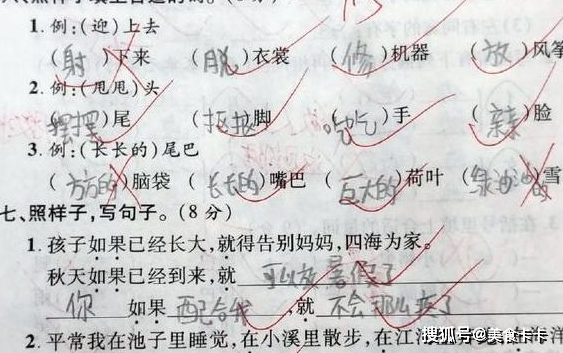 1. 例:(迎)上去
(射)下来 (脱)衣裳 (修)机器 (放)风筝
2. 例:(甩甩)头
(摆摆)尾 (抠抠)脚 (吃吃)手 ( )脸
3. 例:(长长的)尾巴
(方方的)脑袋 (长长的)嘴巴 (巨大的)荷叶 (绿油油的)雪
七、照样子,写句子。(8分)
1. 孩子如果已经长大,就得告别妈妈,四海为家。
秋天如果已经到来,就可以放暑假了
你如果配合我,就不会那么疼了
2. 平常我在池子里睡觉,在小溪里散步,在江
搜狐号@美食卡卡